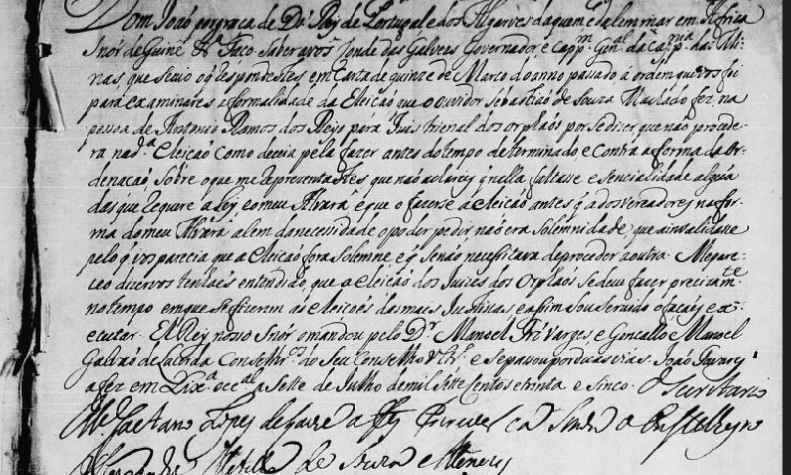 Dom João por graça de Ds Rey de Portugal e dos Algarves daquem e dalem mar em Africa
Snõr de Guiné &a Faço saber a vos Conde das Galveas Governador e Capp.m Gen.al da Cap.nia das Mi-
nas que se vio o q respondestes em Carta de quinze de Março do anno passado a ordem que vos fui
para examinares a formalidade da Eleição que o ouvidor Sebastião de Souza Machado fez na
pessoa de Antonio Ramos dos Reys para Juis trienal dos orphaós por se dizer que não procede-
ra na d.a Eleicaó como devia pela fazer antes do tempo determinado e contra a forma da Or-
denacaó, sobre o que me Representastes que não achareis q nella faltasse esencialidade algúa
das que Requere a Ley e meu Alvará e que o fazerse a eleicaó antes q a dos Vereadores na for-
ma do meu Alvará alem da necessidade o poder pedir não era solemnidade que a invalidasse
pelo q vos parecia que a eleicaó fora solemne e q senão necessitava de proceder a outra. Me pare-
ceo dizervos tenhaés entendido, que a eleicaó dos Juizes dos Orphaós se deve fazer precizam.te
no tempo em que se fizerem as eleicoés das mais Justiças e assim sou servido o façaes exe-
cutar. El Rey nosso Snõr o mandou pelo D.r Manoel Frz Vargas e Goncallo Manoel
Galvaó de Lacerda Conselhr.os do Seu Conselho Ultr.o e se passou por duas vias. João Tavares
a fez em Lix.a occ.al a sette de Julho de mil sete centos e trinta e sinco. O Secretario
M.el Caetano Lopes de Lavre a fez escrever